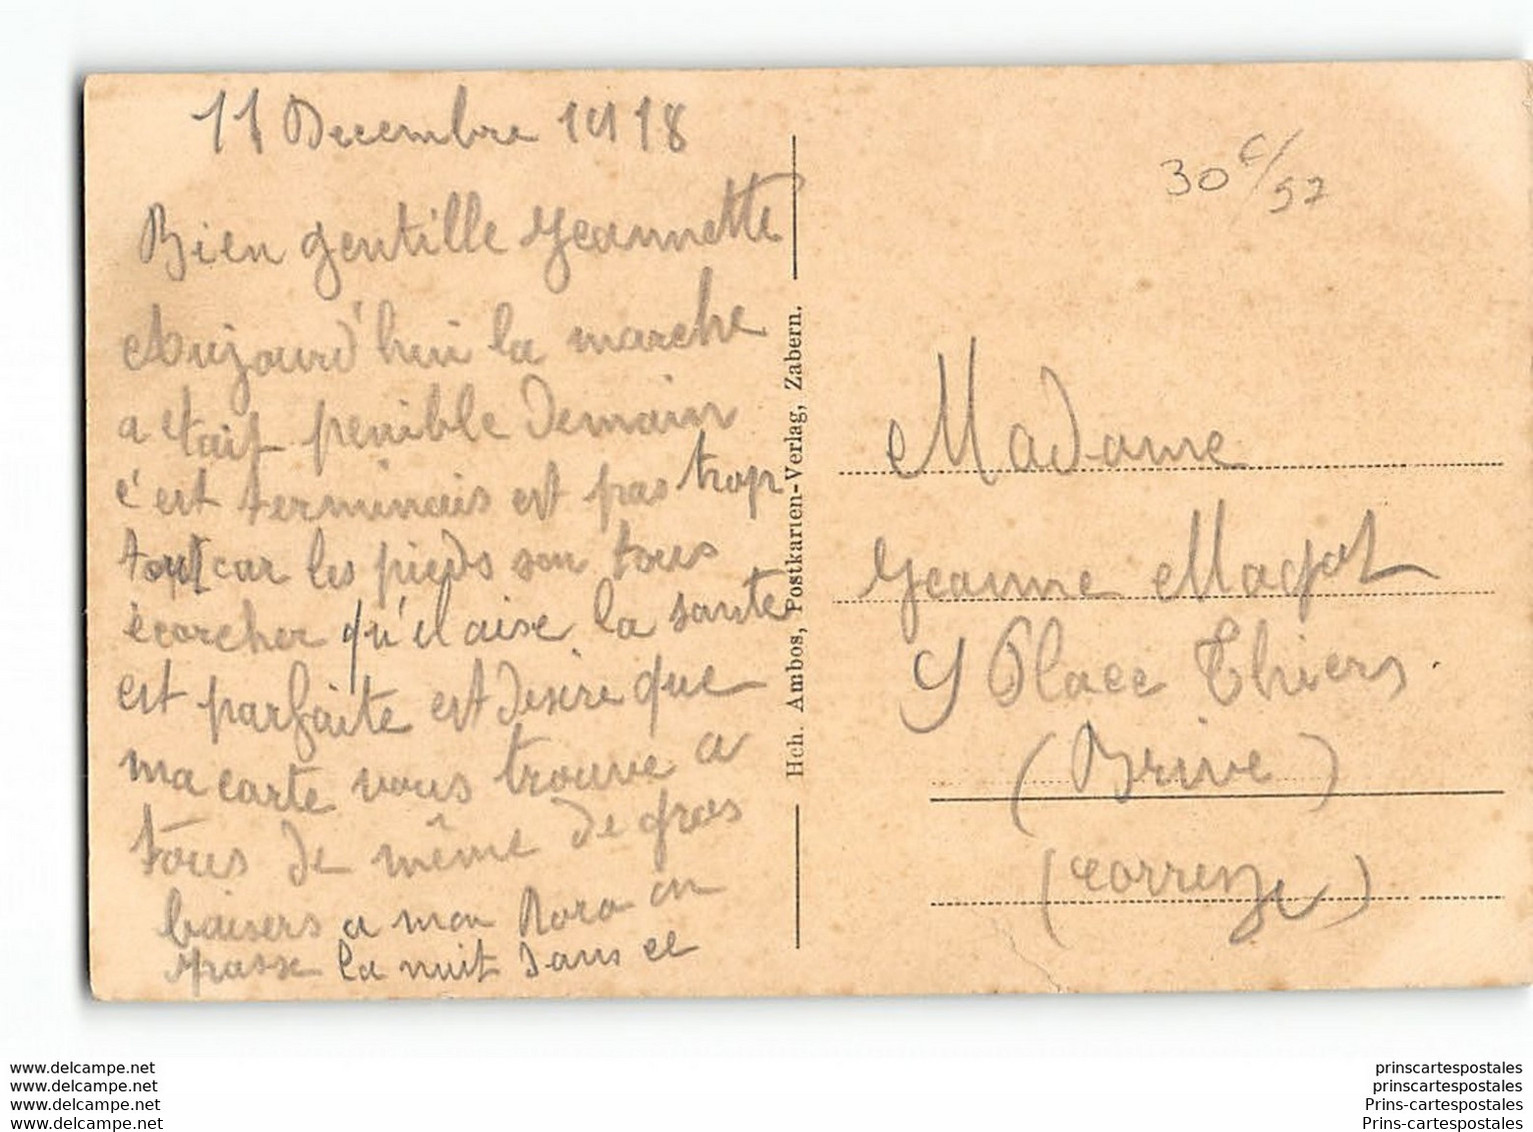 11 Decembre 1918
Bien gentille Jeannette
Aujourd'hui la marche
a etait penible demain
c'est terminais est pas trop
tout car les pieds son tous
écorcher qu'il aise la sante
est parfaite est desire que
ma carte vous trouve a
tous de même de gros
baisers a mon Roro on
passe la nuit dans ce
Hch. Ambos, Postkarten-Verlag, Zabern.
30 c/57
Madame
Jeanne Magot
Place Thiers.
(Brive)
(Correze)
www.delcampe.net
www.delcampe.net
www.delcampe.net
www.delcampe.net
prinscartespostales
prinscartespostales
Prins-cartespostales
Prins-cartespostales